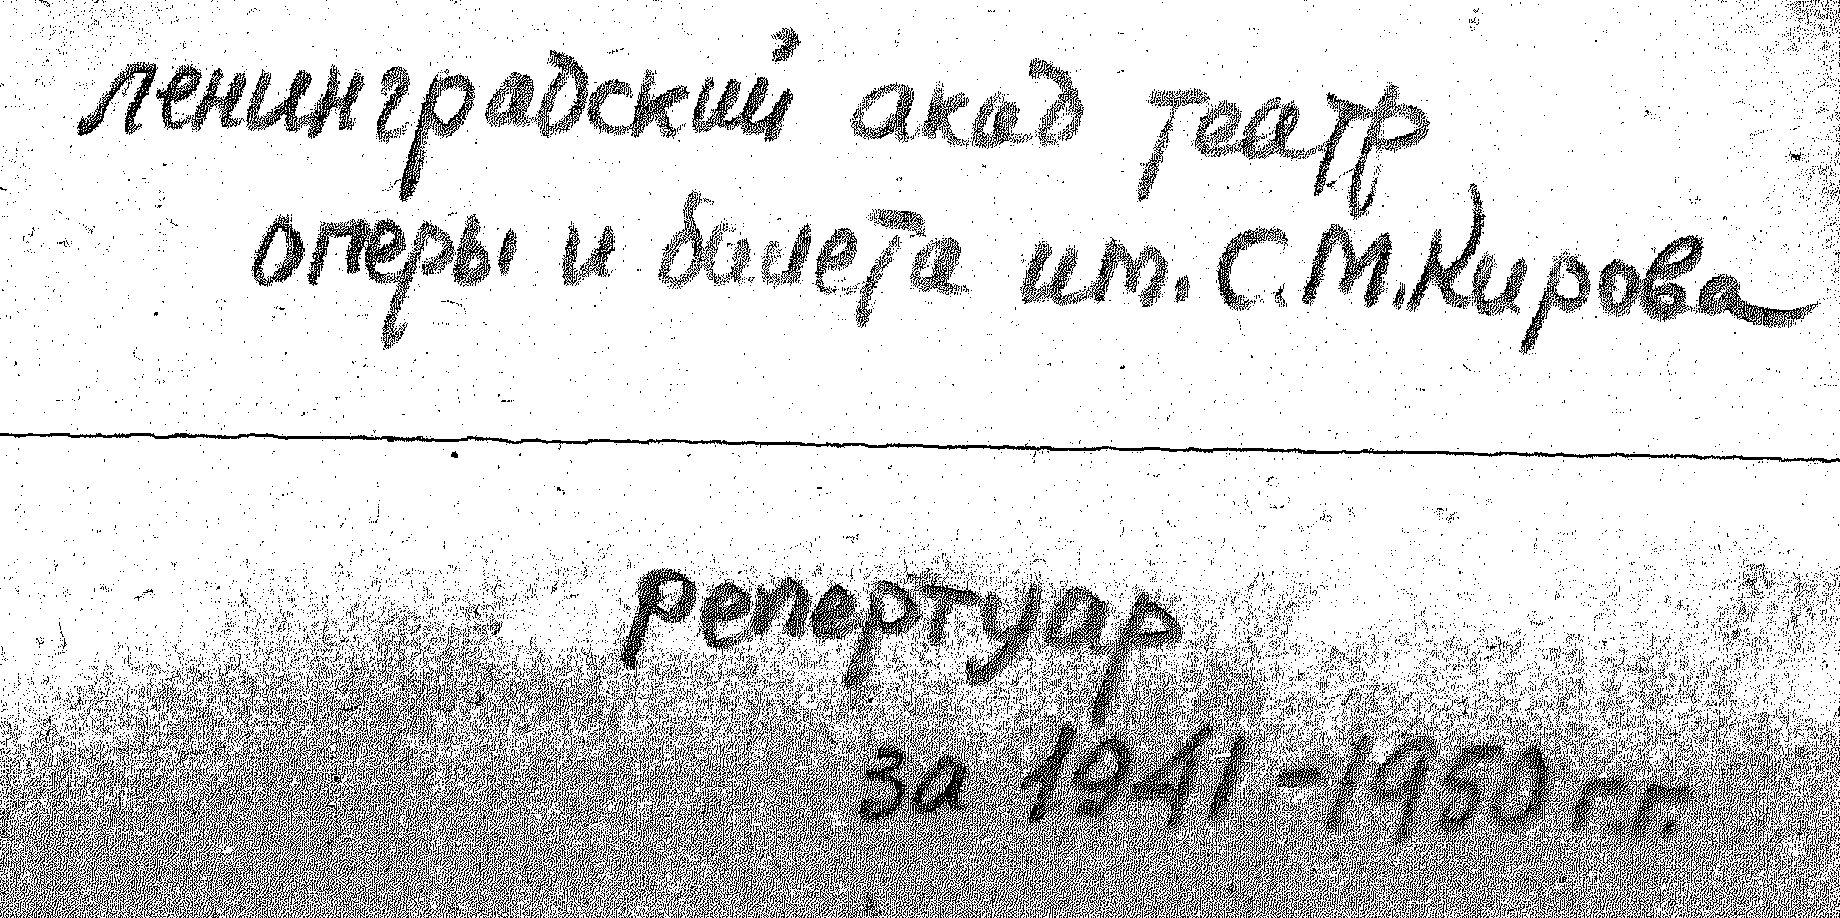 Ленинградский акад театр
оперы и балета им. С.М.Кирова
Репертуар
за 1941-1950 гг.